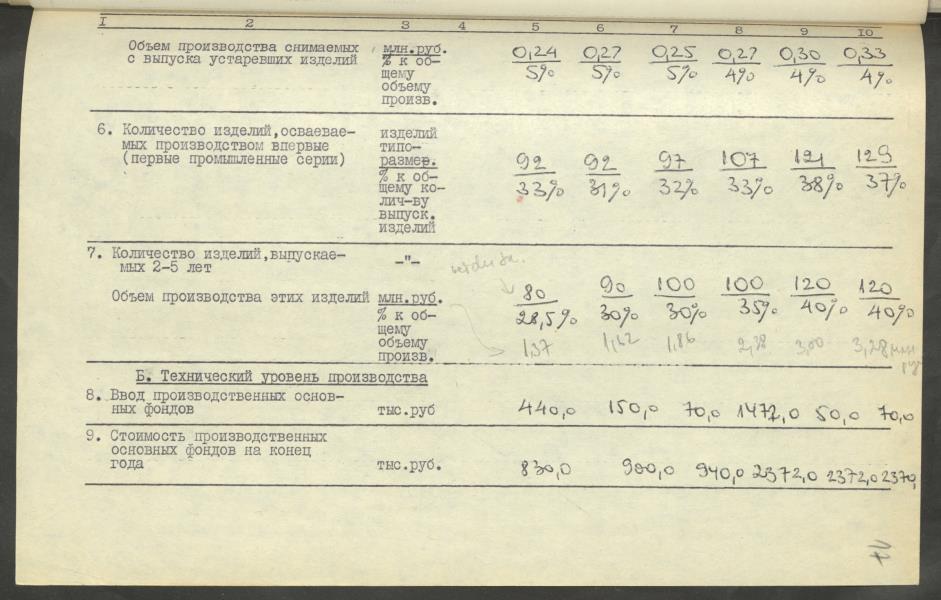 I 2 3 4 5 6 7 8 9 10
Объем производства снимаемых млн.руб. 0,24 0,27 0,25 0,27 0,30 0,33
с выпуска устаревших изделий % к об- 5% 5% 5% 4% 4% 4%
щему
объему
произв.
6. Количество изделий,осваевае- изделий
мых производством впервые типо-
(первые промышленные серии) размер. 92 92 97 107 121 129
% к об- 33% 31% 32% 33% 38% 37%
щему ко-
лич-ву
выпуск.
изделий
7. Количество изделий,выпускае- -"-
мых 2-5 лет
Объем производства этих изделий млн.руб. 80 90 100 100 120 120
% к об- 28,5% 30% 30% 35% 40% 40%
щему
объему 1,37 1,62 1,86 2,38 3,00 3,28 млн
произв.
Б. Технический уровень производства
8. Ввод производственных основ-
ных фондов тыс.руб 440,0 150,0 70,0 1472,0 50,0 70,0
9. Стоимость производственных
основных фондов на конец
года тыс.руб. 830,0 900,0 940,0 2372,0 2372,0 2370,